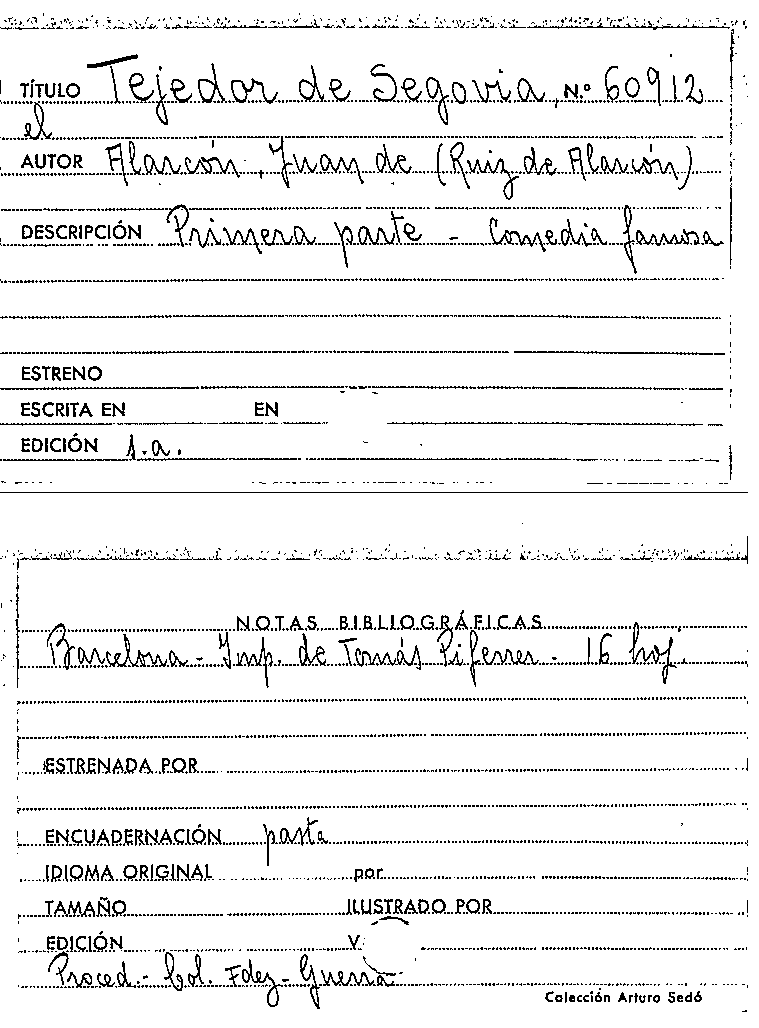 TÍTULO Tejedor de Segovia, N.º 60912
el
AUTOR Alarcón, Juan de (Ruiz de Alarcón)
DESCRIPCIÓN Primera parte - Comedia famosa
ESTRENO
ESCRITA EN EN
EDICIÓN s.a.
NOTAS BIBLIOGRÁFICAS
Barcelona - Imp. de Tomás Piferrer - 16 hoj.
ESTRENADA POR
ENCUADERNACIÓN pasta
IDIOMA ORIGINAL por
TAMAÑO ILUSTRADO POR
EDICIÓN V.
Proced.- Col. Fdez-Guerra
Colección Arturo Sedó